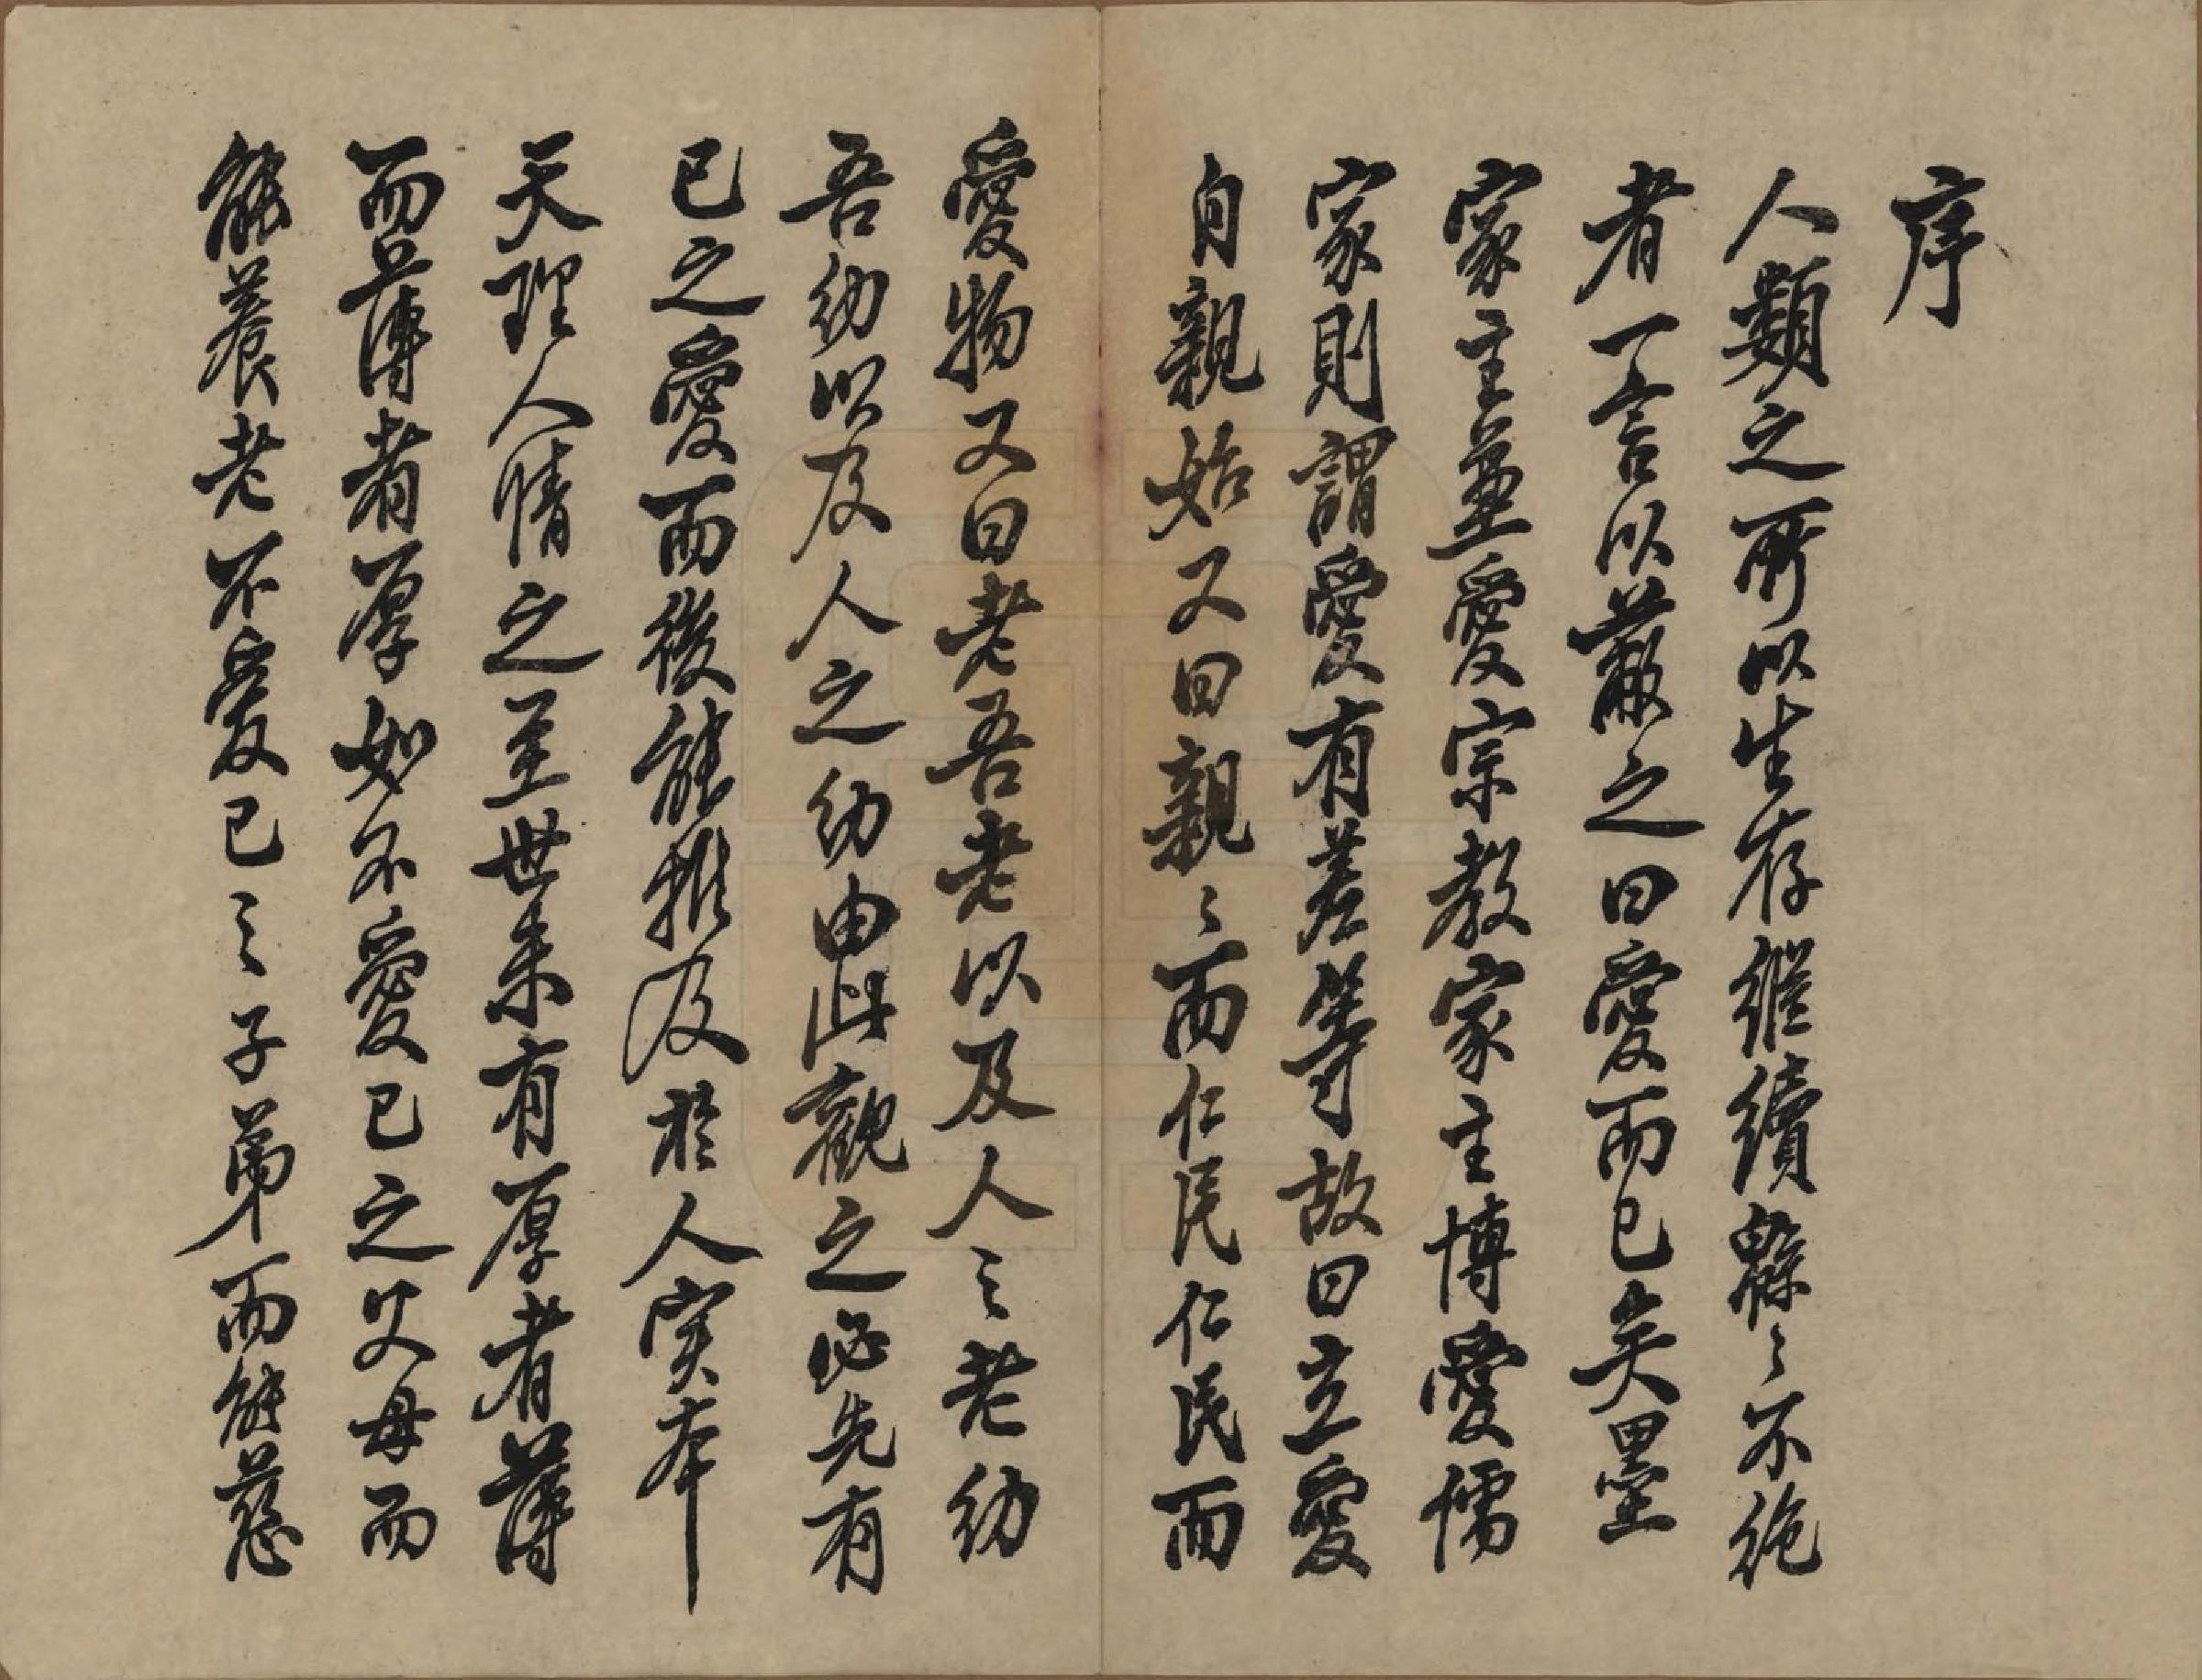 序
人類之所以生存継續緜〻不絶
者一言以蔽之曰愛而已矣墨
家主兼愛宗教家主博愛儒
家則謂愛有差等故曰立愛
自親始又曰親〻而仁民仁民而
愛物又曰老吾老以及人〻老幼
吾幼以及人之幼由此觀之必先有
己之愛而後能推及於人实本
天理人情之至世未有厚者薄
而薄者厚如不愛己之父母而
能養老不愛己之子弟而能慈